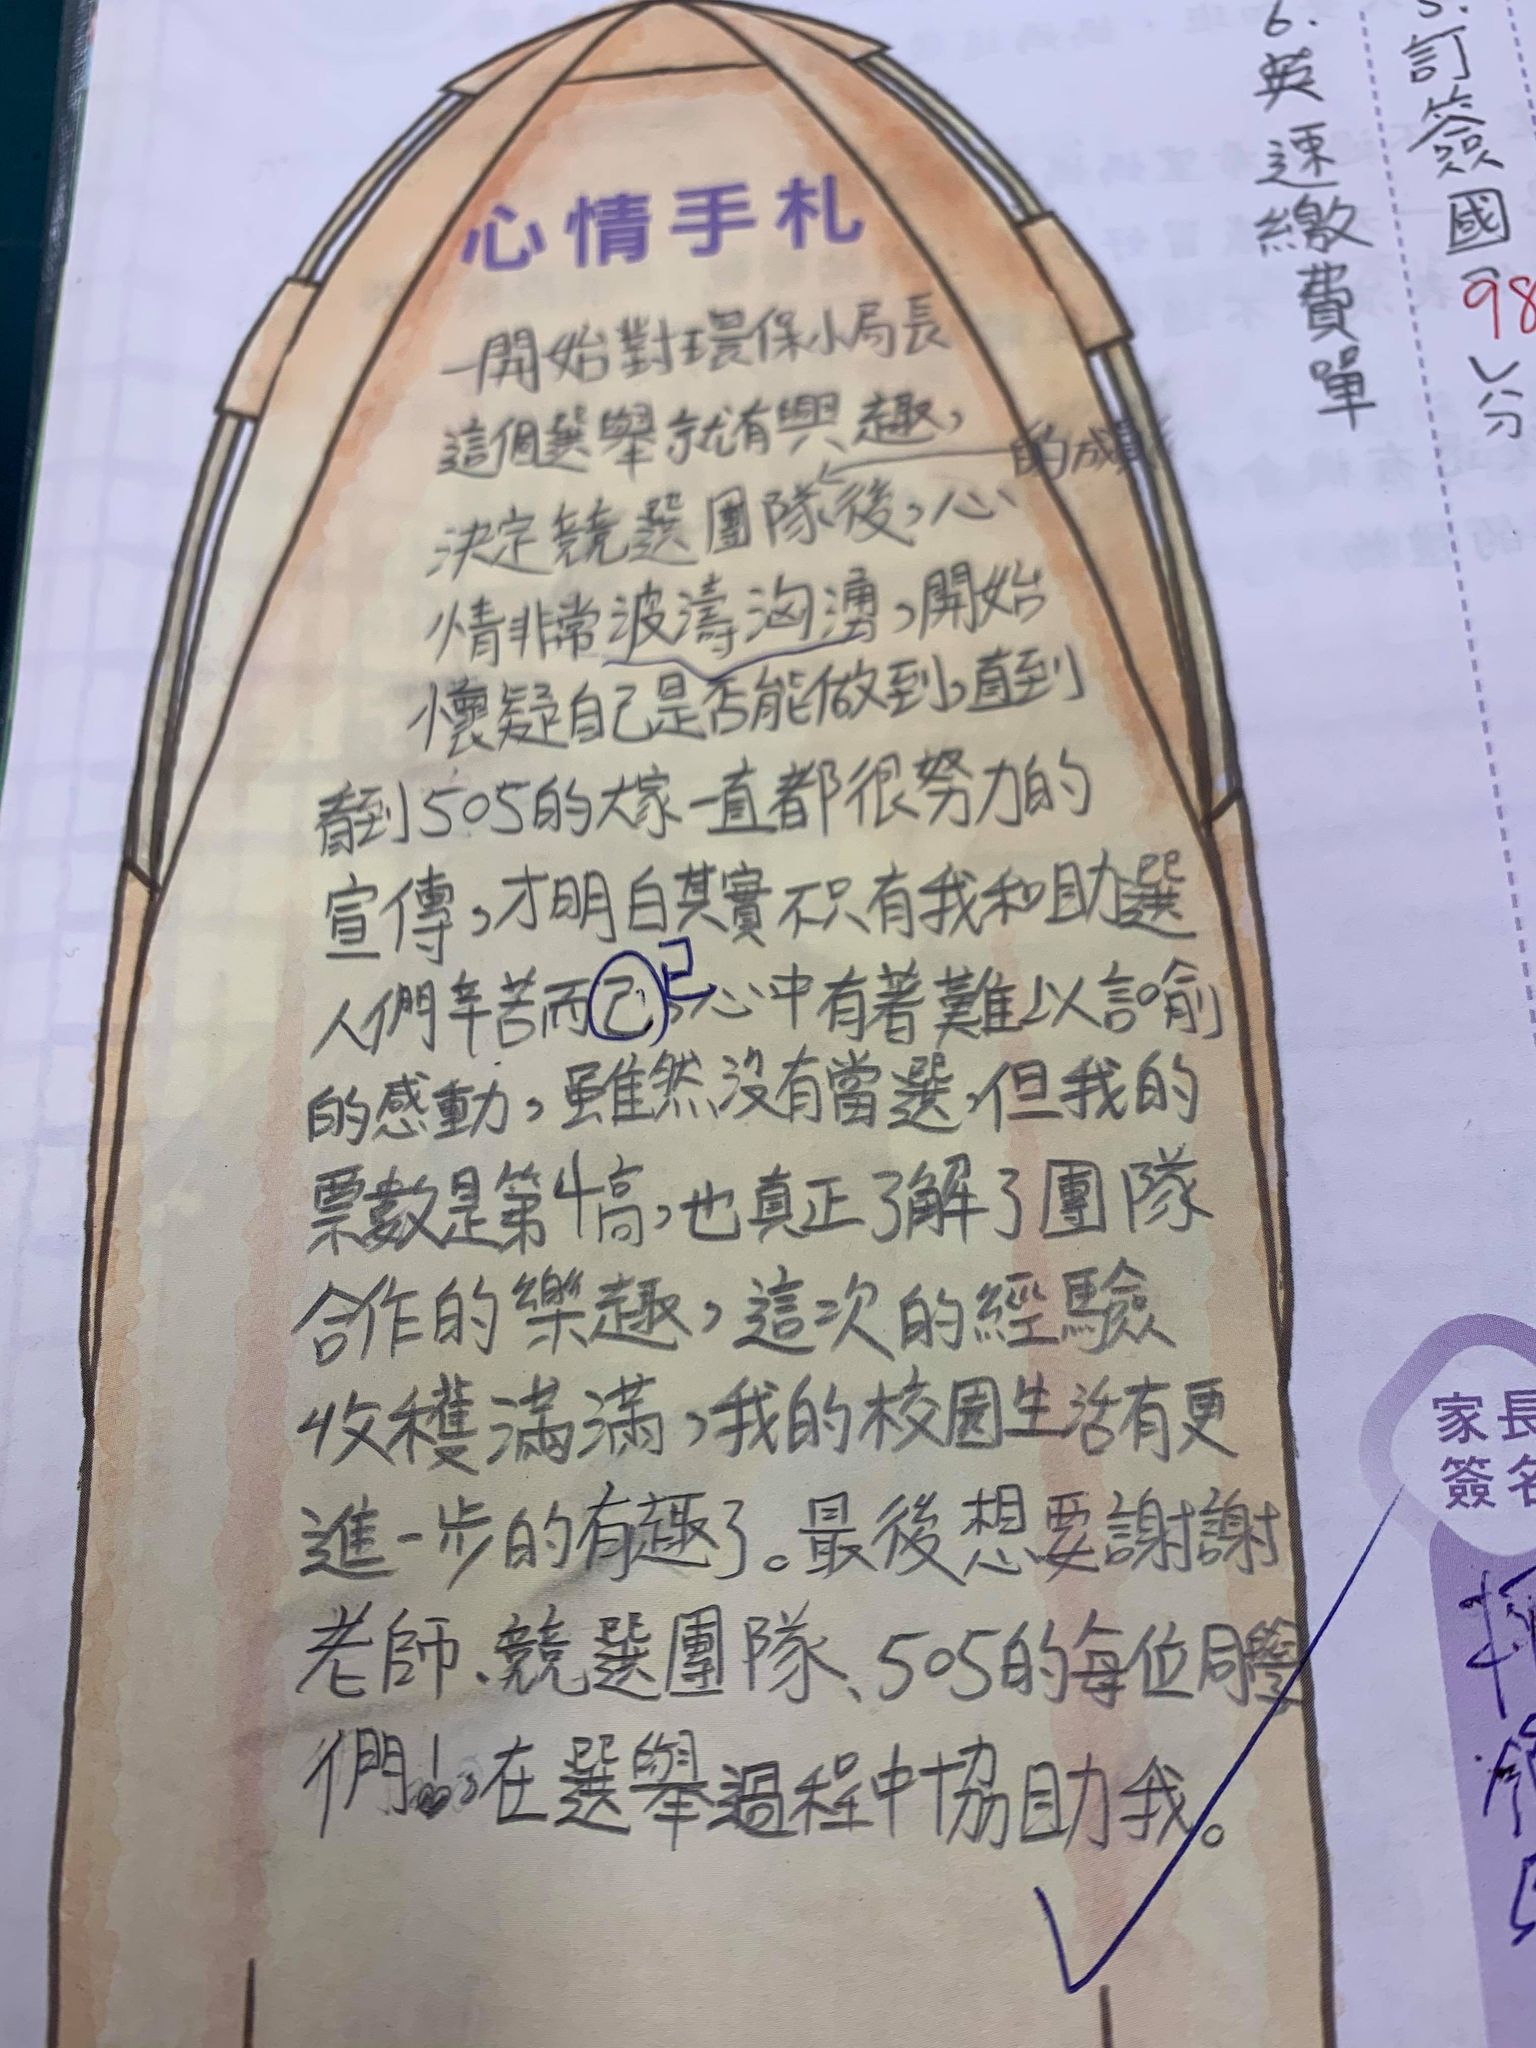 心情手札
一開始對環保小局長
這個選舉就有興趣，
的成員
決定競選團隊後，心
情非常波濤洶湧，開始
懷疑自己是否能做到，直到
看到505的大家一直都很努力的
宣傳，才明白其實不只有我和助選
人們辛苦而己，心中有著難以言喻
已
的感動，雖然沒有當選，但我的
票數是第4高，也真正了解了團隊
合作的樂趣，這次的經驗
收穫滿滿，我的校園生活有更
進一步的有趣了。最後想要謝謝
老師、競選團隊、505的每位同學
們！在選舉過程中協助我。
5.訂簽國㊈98分
6.英速繳費單
家長
簽名